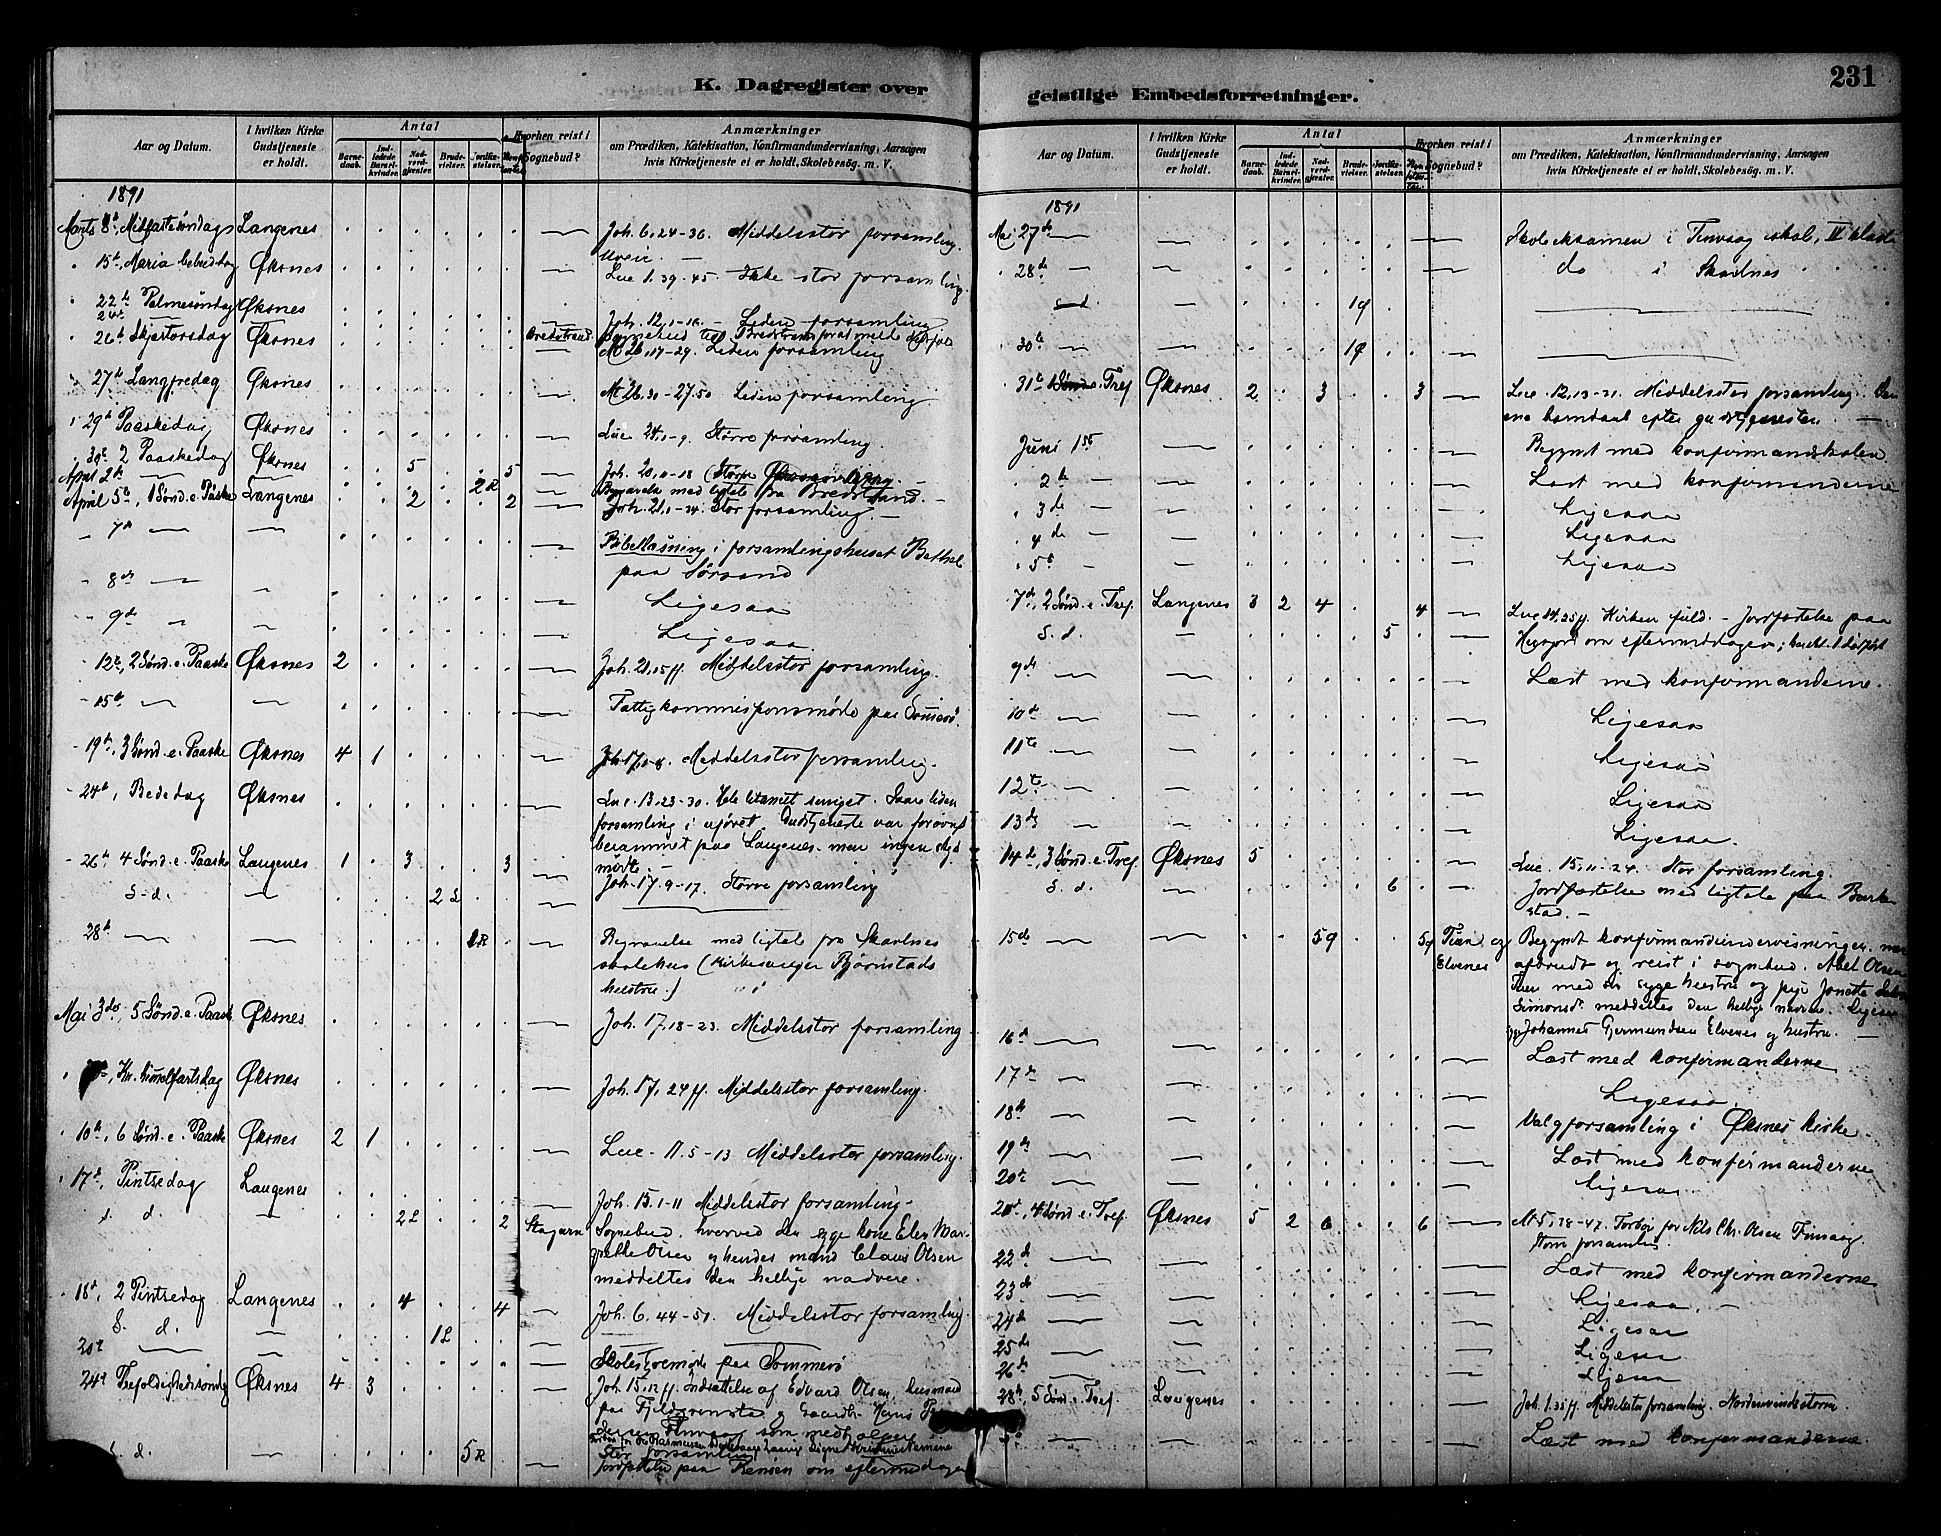 K. Dagregister over
geistlige Embedsforretninger.
231
Aar og Datum.
I hvilken Kirke Gudstjeneste er holdt.
Antal
Barnedaab.
Indledede Barselkvinder.
Nadverdgjester.
Brudevielser.
Jordfæstelser.
Hvorhen reist i Sognebud?
Anmærkninger
om Prædiken, Katekisation, Konfirmandundervisning, Aarsagen
hvis Kirketjeneste ei er holdt, Skolebesög. m. V.
1891
Marts 8de, Midfastesöndag Langenes Joh. 6, 24-36. Middelsstor forsamling.
Uveir. —
15de, Maria bebud.dag Øksnes Luc. 1. 39-45. Ikke stor forsamling.
22de Palmesöndag Øksnes Joh. 12, 1-16. — Liden forsamling
24de Bredstrand Sognebud til Bredstrand
26de Skjærtorsdag Øksnes M. 26, 17-29. Liden forsamling
27de Langfredag Øksnes M. 26. 30-27. 50 Liden forsamling.
29de Paaskedag Øksnes Luc. 24, 1-9. Större forsamling.
30te 2 Paaskedag Øksnes 5 5 Joh. 20, 11-18
April 2de — 2 R Begravelse med ligtale fra Bredstrand. —
April 5te, 1 Sönd. e. Påske Langenes 2 2 Joh. 21, 1-14. Stor forsamling. —
7de — — Bibellæsning i forsamlingshuset Bethel
paa Sørsand
8de — Ligesaa
9de " Ligesaa.
12te, 2 Sönd. e. Paaske Øksnes 2 Joh. 21, 15 ff. Middelsstor forsamling.
15de — — Fattigkommissionsmöde paa Sommerö.
19de, 3 Sönd. e. Paaske Øksnes 4 1 Joh. 17, 1-8. Middelsstor forsamling.
24de, Bededag Øksnes Luc. 13, 23-30. Hele litaniet sunget. Saare liden
forsamling i uföret. Gudstjeneste var forövrigt
berammet paa Langenes, men ingen
mödte. —
26de 4 Sönd. e. Paaske Langenes 1 3 3 Joh. 17. 9-17. Större forsamling
S. d. — 2 L
28de — — 1 R Begravelse med ligtale fra Skavlnes
skolehus (Kirkesanger Björnstads
hustru.)
Mai 3die, 5 Sönd. e. Paaske Øksnes Joh. 17. 18-23. Middelsstor forsamling
Kr. himmelfartsdag Øksnes Joh. 17, 24 ff. Middelsstor forsamling.
10de, 6 Sönd. e. Paaske Øksnes 2 1 Luc. 11. 5-13 Middelsstor forsamling.
17de, Pintsedag Langenes Joh. 15. 1-11 Middelsstor forsamling —
S. d. — 2 L 2 Sognebud, hvorved den syge kone Elen Mar-
grethe Olsen og hendes mand Claus Olsen
meddeltes den hellige nadvere.
18de, 2 Pintsedag Langenes 4 4 Joh. 6. 44-51. Middelsstor forsamling.
S. d. — 1 L
20de — — Skolestyremöde paa Sommerö
24de Trefoldighedssöndag Øksnes 4 3 Joh. 15, 12 ff. Indsættelse af Edvard Olsen, husmand
paa og Hans
Finvaag som medhjælpere
Stor forsamling
S. d. — 5 R Jordfæstelse paa om eftermiddagen
Aar og Datum.
I hvilken Kirke Gudstjeneste er holdt.
Antal
Barnedaab.
Indledede Barselkvinder.
Nadverdgjester.
Brudevielser.
Jordfæstelser.
Hvorhen reist i Sognebud?
Anmærkninger
om Prædiken, Katekisation, Konfirmandundervisning, Aarsagen
hvis Kirketjeneste ei er holdt, Skolebesög. m. V.
1891
Mai 27de — — Skoleeksamen i Finvaag skole, II klasse
28de — — do i Skavlnes
s. d. — 19
30te — — 19
31te 1 Sönd. e. Tref. Øksnes 2 3 3 Luc. 12, 13-21. Middelsstor forsamling.
barndaab efter gudstjenesten. —
Juni 1ste — Begynt med konfirmandskolen
2de — — Læst med konfirmanderne
3de — — Ligesaa
4de — Ligesaa
5te — Ligesaa
7de, 2 Sönd. e. Tref. Langenes 3 2 4 4 Luc. 14, 25 ff. Kirken fuld. — Jordfæstelse paa
S. d. — 5 om eftermiddagen;
9de — — Læst med konfirmanderne.
10de — — Ligesaa
11te — — Ligesaa
12te — — Ligesaa
13de — — Ligesaa.
14de 3 Sönd. e. Tref. Øksnes 5 Luc. 15, 11-24. Stor forsamling.
S. d. — 6 Jordfæstelse med ligtale paa Barke-
stad. —
15de — — 59 59 Tinden og Elvenes Begyndt konfirmandundervisningen, men
afbrudt og reist i sognebud. Abel Olsen
Tien med sin syge hustru og pige Jonette
Simonsd. meddeltes den hellige nadvere. Ligesaa
Johannes Germundsen Elvenes og hustru. —
16de — — Læst med konfirmanderne
17de — — Ligesaa.
18de — — Valgforsamling i Øksnes kirke.
19de — — Læst med konfirmanderne
20de — — Ligesaa.
21de, 4 Sönd. e. Tref. Øksnes 5 2 6 6 M. 5, 38-47. Forbön for Nils Chr. Olsen Finvaag.
Stor forsamling.
22de — — Læst med konfirmanderne
23de — — Ligesaa. —
24de — — Ligesaa
25de — — Ligesaa
26de — — Ligesaa
28de, 5 Sönd. e. Tref. Langenes Joh. 1. 35 ff. Middelsstor forsamling. Nordenvindsstorm
— — Læst med konfirmanderne